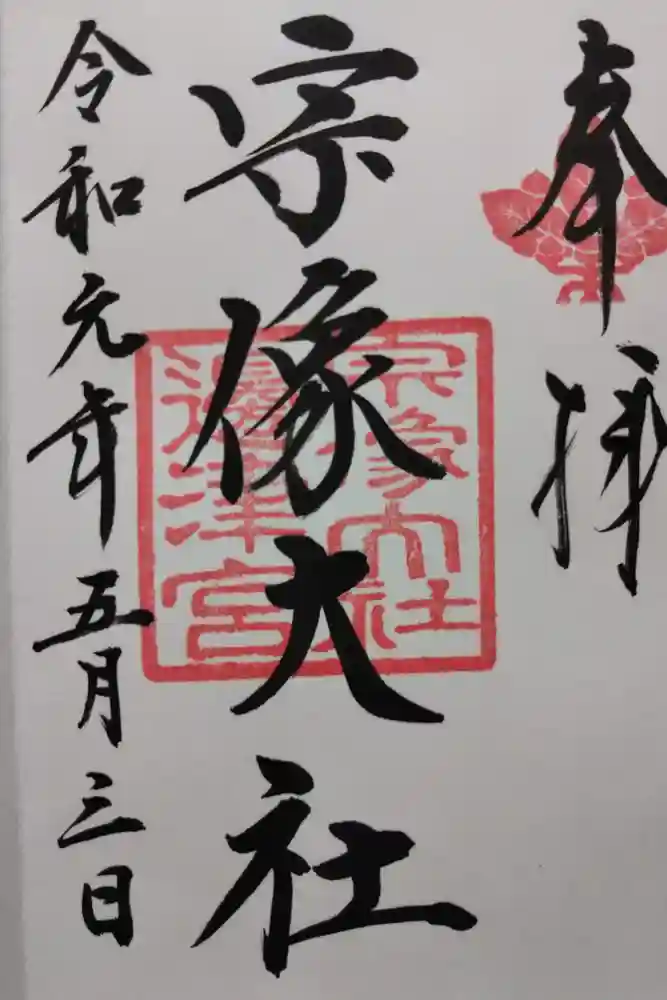 奉拝
宗像大社
宗像大社
邊津宮
令和元年五月三日